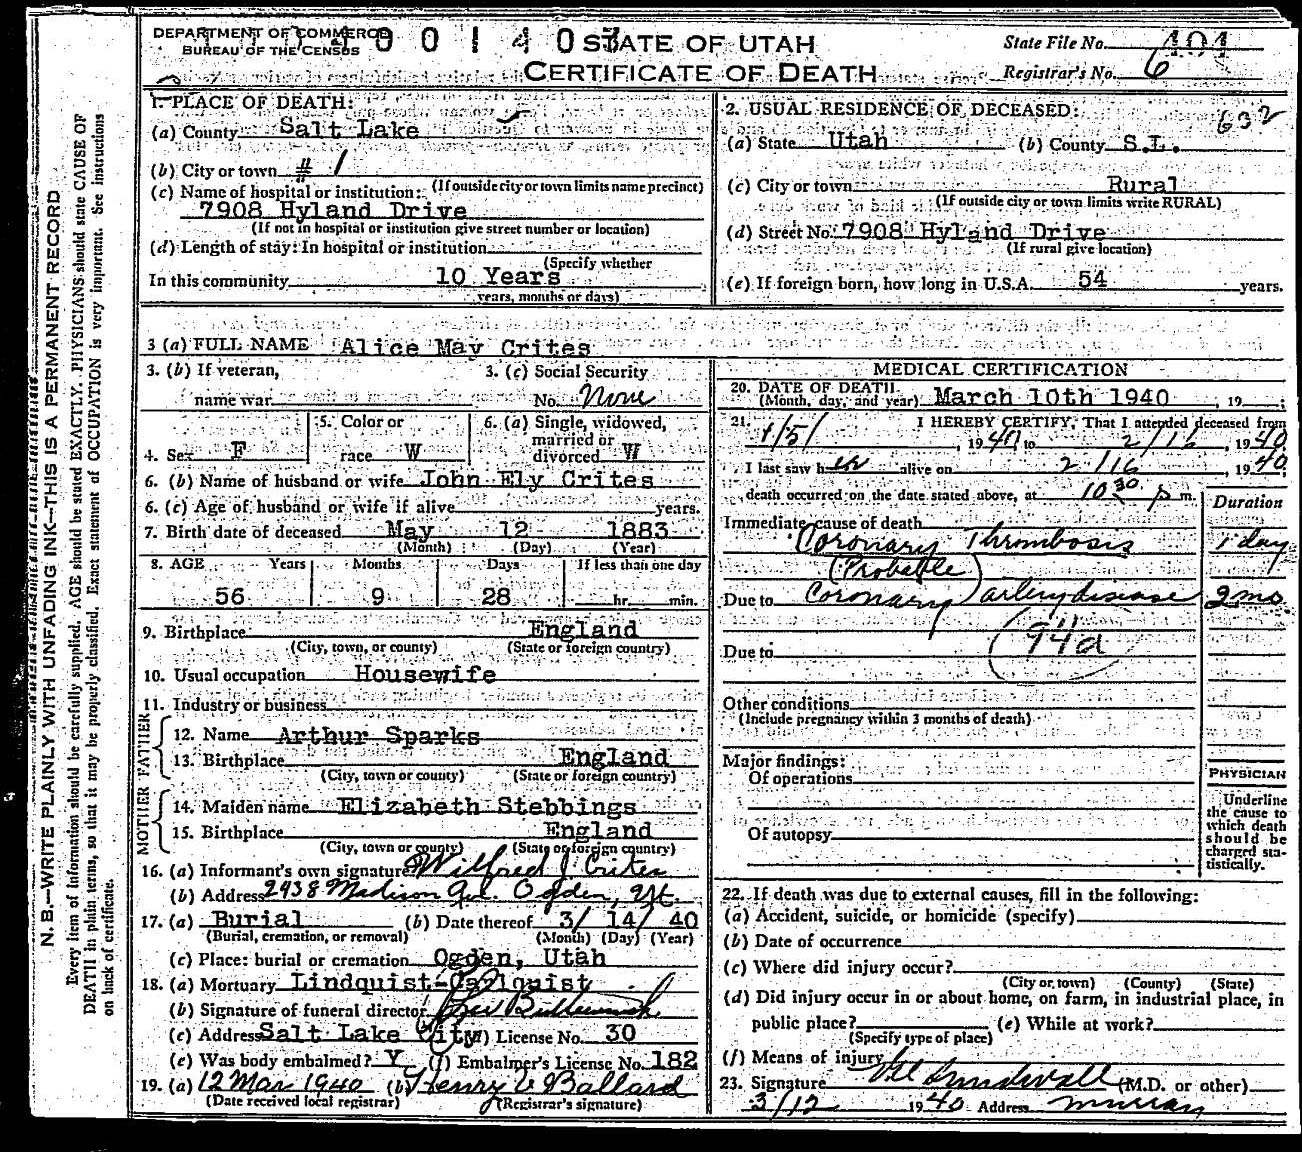 DEPARTMENT OF COMMERCE
BUREAU OF THE CENSUS
STATE OF UTAH
CERTIFICATE OF DEATH
State File No. 404
Registrar's No. 6
1. PLACE OF DEATH:
(a) County Salt Lake
(b) City or town # 1
(If outside city or town limits name precinct)
(c) Name of hospital or institution:
7908 Hyland Drive
(If not in hospital or institution give street number or location)
(d) Length of stay: In hospital or institution
(Specify whether
In this community 10 Years
years, months or days)
2. USUAL RESIDENCE OF DECEASED:
632
(a) State Utah (b) County S.L.
(c) City or town Rural
(If outside city or town limits write RURAL)
(d) Street No. 7908 Hyland Drive
(If rural give location)
(e) If foreign born, how long in U.S.A. 54 years.
3 (a) FULL NAME Alice May Crites
3. (b) If veteran,
name war
3. (c) Social Security
No. None
4. Sex F
5. Color or
race W
6. (a) Single, widowed,
married or
divorced W
6. (b) Name of husband or wife John Ely Crites
6. (c) Age of husband or wife if alive years.
7. Birth date of deceased May 12 1883
(Month) (Day) (Year)
8. AGE Years Months Days If less than one day
56 9 28 hr. min.
9. Birthplace England
(City, town, or county) (State or foreign country)
10. Usual occupation Housewife
11. Industry or business
FATHER
12. Name Arthur Sparks
13. Birthplace England
(City, town or county) (State or foreign country)
MOTHER
14. Maiden name Elizabeth Stebbings
15. Birthplace England
(City, town or county) (State or foreign country)
16. (a) Informant's own signature Wilfred J Crites
(b) Address 2438 Madison Ave. Ogden, Ut.
17. (a) Burial (b) Date thereof 3/ 14/ 40
(Burial, cremation, or removal) (Month) (Day) (Year)
(c) Place: burial or cremation Ogden, Utah
18. (a) Mortuary Lindquist-Carlquist
(b) Signature of funeral director
(c) Address Salt Lake City (d) License No. 30
(e) Was body embalmed? Y (f) Embalmer's License No. 182
19. (a) 12 Mar 1940 (b) Henry V Ballard
(Date received local registrar) (Registrar's signature)
MEDICAL CERTIFICATION
20. DATE OF DEATH
(Month, day, and year) March 10th 1940, 19 ;
21. I HEREBY CERTIFY, That I attended deceased from
1/5/, 1940 to 2/16, 1940
I last saw her alive on 2/16, 1940
death occurred on the date stated above, at 10 30 p m.
Duration
Immediate cause of death
Coronary Thrombosis 1 day
(Probable)
Due to Coronary artery disease 2 mo
94a
Due to
Other conditions
(Include pregnancy within 3 months of death)
Major findings:
Of operations
Of autopsy
PHYSICIAN
Underline
the cause to
which death
should be
charged sta-
tistically.
22. If death was due to external causes, fill in the following:
(a) Accident, suicide, or homicide (specify)
(b) Date of occurrence
(c) Where did injury occur?
(City or town) (County) (State)
(d) Did injury occur in or about home, on farm, in industrial place, in
public place? (e) While at work?
(Specify type of place)
(f) Means of injury
23. Signature Sundwall (M.D. or other)
3/12 1940 Address Murray
N. B.—WRITE PLAINLY WITH UNFADING INK—THIS IS A PERMANENT RECORD
Every item of information should be carefully supplied. AGE should be stated EXACTLY. PHYSICIANS should state CAUSE OF
DEATH in plain terms, so that it may be properly classified. Exact statement of OCCUPATION is very important. See instructions
on back of certificate.